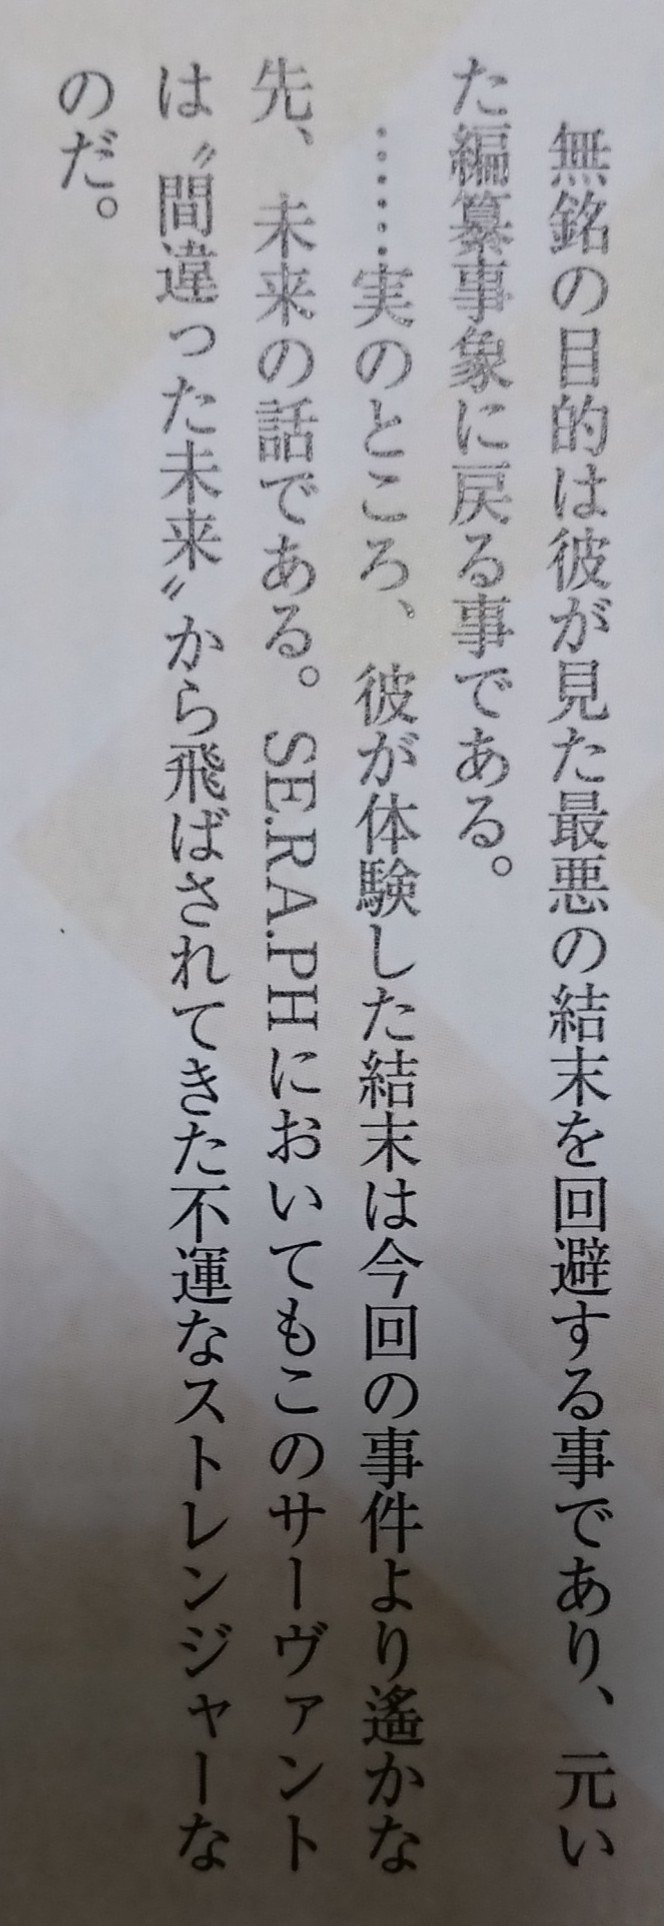 無銘の目的は彼が見た最悪の結末を回避する事であり、元い
た編纂事象に戻る事である。
　……実のところ、彼が体験した結末は今回の事件より遙かな
先、未来の話である。SE.RA.PHにおいてもこのサーヴァント
は〝間違った未来〟から飛ばされてきた不運なストレンジャーな
のだ。